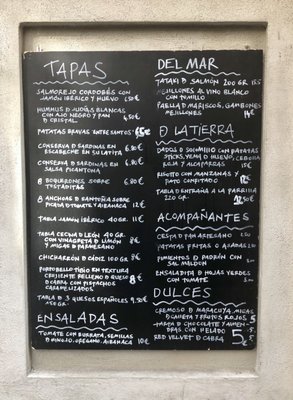 TAPAS
SALMOREJO CORDOBÉS CON
JAMÓN IBÉRICO Y HUEVO 6,50€
HUMMUS D JUDÍAS BLANCAS
CON AJO NEGRO Y PAN
D CRISTAL. 4,50€
PATATAS BRAVAS "ENTRE SANTOS" 6,5€
CONSERVA D SARDINAS EN
ESCABECHE EN SU LATITA 6,80€
CONSERVA D SARDINAS EN
SALSA PICANTONA 6,80€
8 BOQUERONES SOBRE
TOSTADITAS 6,80€
8 ANCHOAS D SANTOÑA SOBRE
PICADA D TOMATE Y ALBAHACA 12€
TABLA JAMÓN IBÉRICO 40 GR. 11€
TABLA CECINA D LEÓN 40 GR.
CON VINAGRETA D LIMÓN
Y MIGAS D PARMESANO 8€
CHICHARRÓN D CÁDIZ 100 GR. 9€
PORTOBELLO TIBIO EN TEXTURA
CRUJIENTE RELLENO D QUESO
D CABRA CON PISTACHOS
CARAMELIZADOS 8€
TABLA D 3 QUESOS ESPAÑOLES 9,50€
150 GR.
ENSALADAS
TOMATE CON BURRATA, SEMILLAS
D HINOJO, ORÉGANO, ALBAHACA 10€
DEL MAR
TATAKI D SALMÓN 200 GR. 15,5
MEJILLONES AL VINO BLANCO
CON TOMILLO
PAELLA D MARISCOS, GAMBONES
MEJILLONES 14€
D LA TIERRA
DADOS D SOLOMILLO CON PATATAS
STICKS, YEMA D HUEVO, CEBOLLA
ROJA Y ALCAPARRAS 15€
RIGOTTE CON MANZANAS Y
PATO CONFITADO 12€
TABLA D ENTRAÑA A LA PARRILLA
220 GR. 12,50€
ACOMPAÑANTES
CESTA D PAN ARTESANO
PATATAS FRITAS O ASADAS
PIMIENTOS D PADRÓN CON
SAL MALDON
ENSALADITA D HOJAS VERDES
CON TOMATE
DULCES
CREMOSO D MARACUYÁ, MIGAS
D GALLETA Y FRUTOS ROJOS 5
TARTA D CHOCOLATE Y ALMEN-
DRAS CON HELADO
RED VELVET D CABRA 5